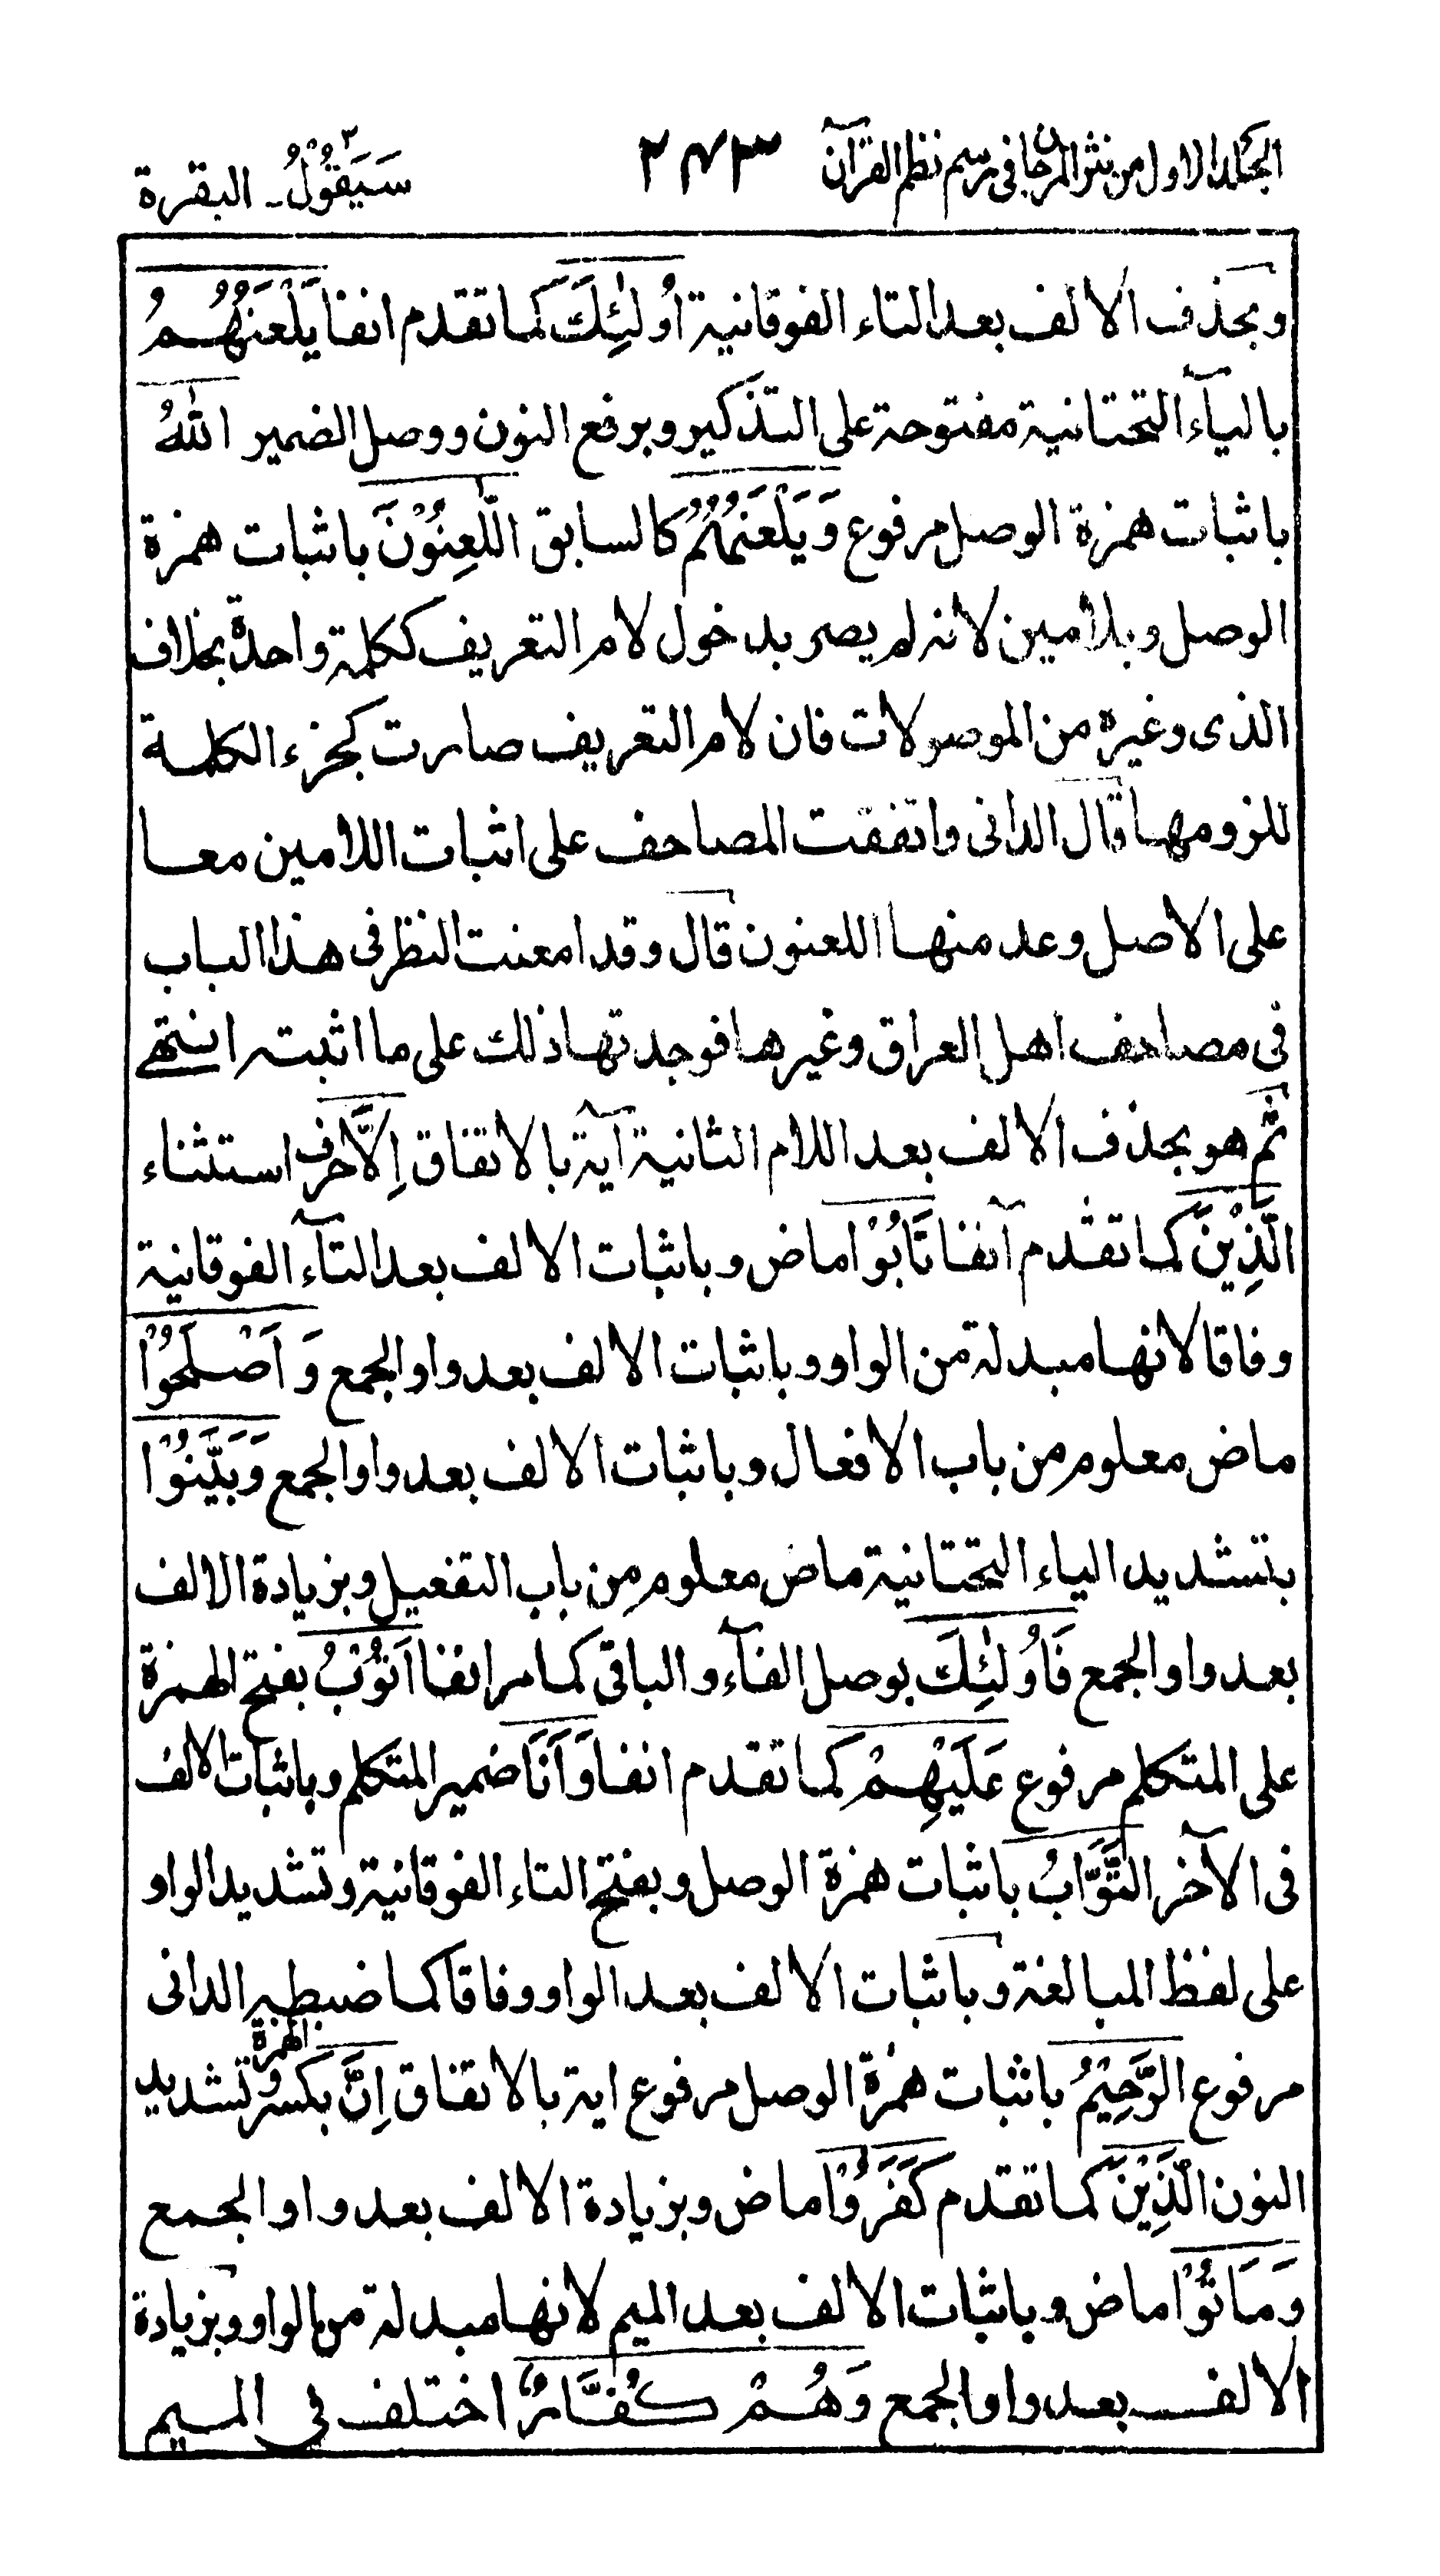 الجلد الاول من نثر المرجان فى رسم نظم القرآن ٢٤٣ سَيَقُوْلُ ٢ـ البقرة
وبحذف الالف بعد التاء الفوقانية اُولٰئِكَ كما تقدم انفا يَلْعَنُهُمُ
بالياۤء التحتانية مفتوحة على التذكير وبرفع النون ووصل الضمير اللّٰهُ
باثبات همزة الوصل مرفوع وَيَلْعَنُهُمُ كالسابق اللّٰعِنُوْنَ باثبات همزة
الوصل وبلامين لانه لم يصر بدخول لام التعريف ككلمة واحدة بخلاف
الذى وغيره من الموصولات فان لام التعريف صارت كجزء الكلمة
للزومها قال الدانى واتفقت المصاحف على اثبات اللامين معا
على الاصل وعد منها اللعنون قال وقد امعنت النظر فى هذا الباب
فى مصاحف اهل العراق وغيرها فوجدتها ذلك على ما اثبته انتهى
ثم هو بحذف الالف بعد اللام الثانية آية بالاتفاق اِلَّا حرف استثناء
الَّذِيْنَ كما تقدم آنفا تَابُوْا ماض وباثبات الالف بعد التاۤء الفوقانية
وفاقا لانها مبدلة من الواو وباثبات الالف بعد واو الجمع وَ اَصْلَحُوْا
ماض معلوم من باب الافعال وباثبات الالف بعد واو الجمع وَبَيَّنُوْا
بتشديد الياء التحتانية ماض معلوم من باب التفعيل وبزيادة الالف
بعد واو الجمع فَاُولٰئِكَ بوصل الفاۤء والباقى كما مر انفا اَتُوْبُ بفتح الهمزة
على المتكلم مرفوع عَلَيْهِمْ كما تقدم انفا وَاَنَا ضمير المتكلم وباثبات الالف
فى الآخر التَّوَّابُ باثبات همزة الوصل وبفتح التاء الفوقانية وتشديد الواو
على لفظ المبالغة وباثبات الالف بعد الواو وفاقا كما ضبطه الدانى
مرفوع الرَّحِيْمُ باثبات همزة الوصل مرفوع اية بالاتفاق اِنَّ بكسر الهمزة وتشديد
النون الَّذِيْنَ كما تقدم كَفَرُوْا ماض وبزيادة الالف بعد واو الجمع
وَمَاتُوْا ماض وباثبات الالف بعد الميم لانها مبدلة من الواو وبزيادة
الالف بعد واو الجمع وَهُمْ كُفَّارٌ اختلف فى الميم